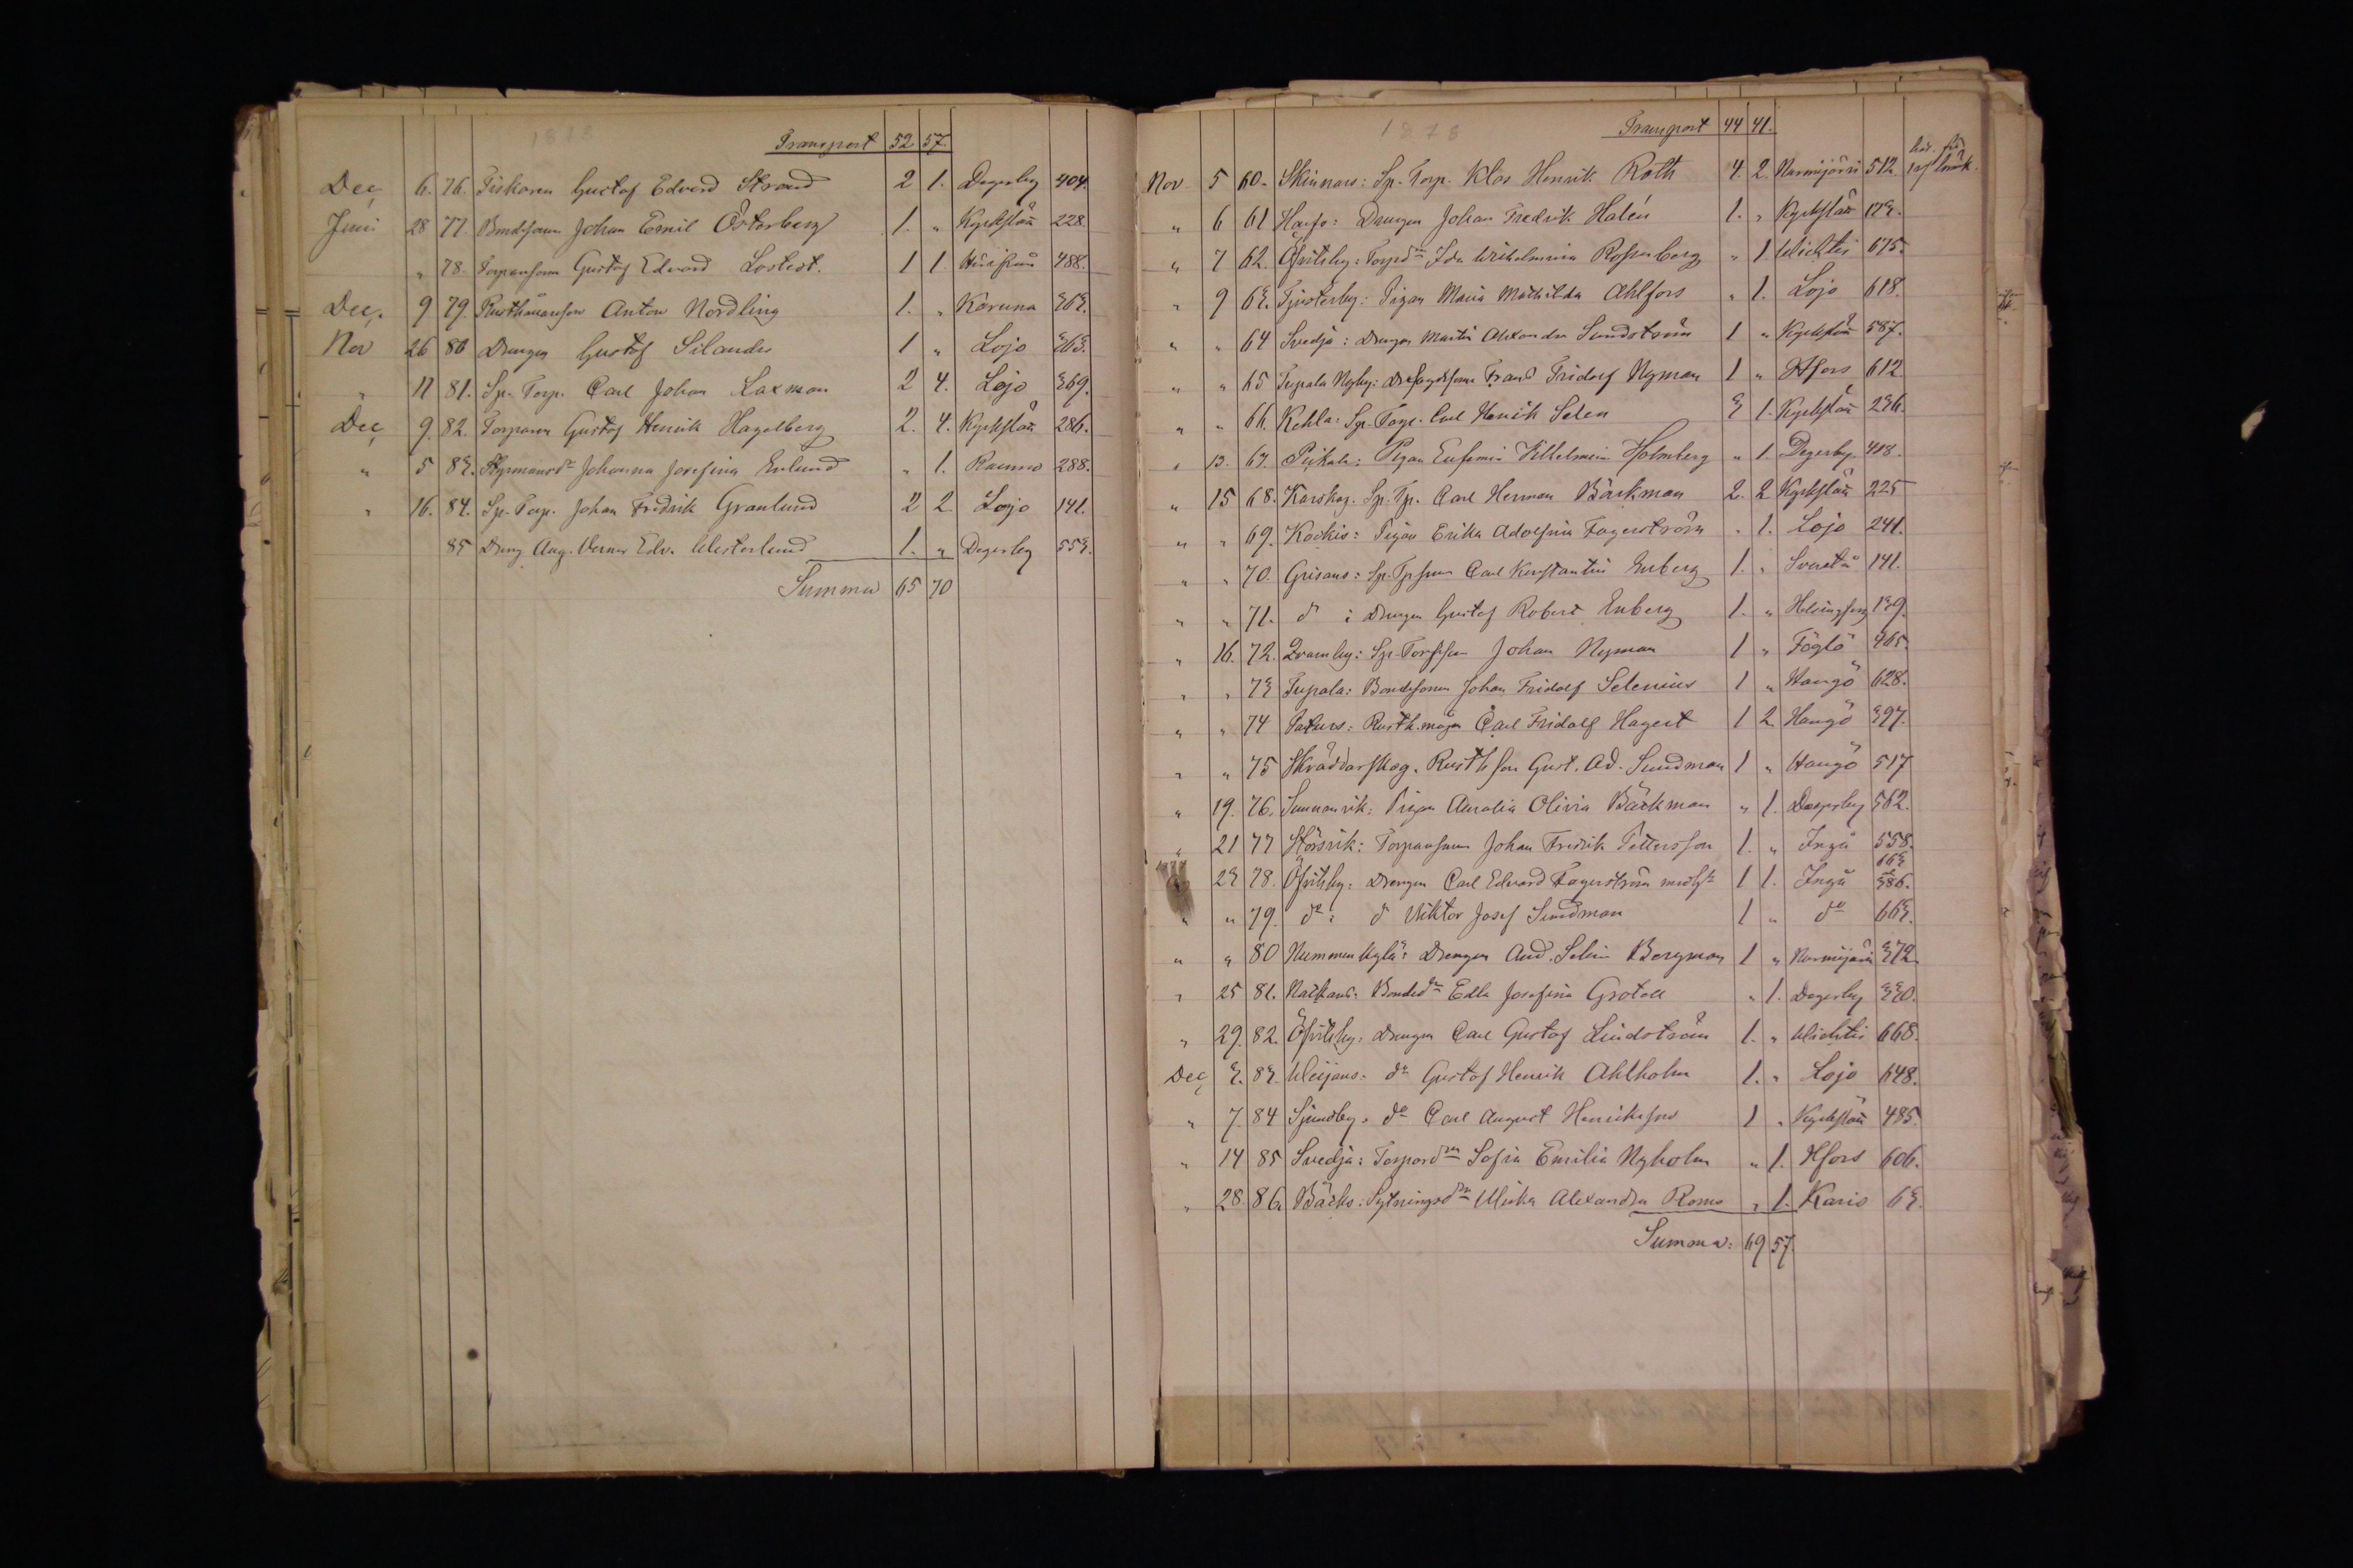 1878
Transport 52 57.
Dec, 6. 76. Fiskaren Gustaf Edvard Strand 2 1. Degerby 404.
Juni 28 77. Bondsonen Johan Emil Österberg 1. " Kyrkslätt 228.
" 78. Torparesonen Gustaf Edvard Lostedt. 1 1. 488.
Dec, 9 79. Rusthållareson Anton Nordling 1. " Karuna 363.
Nov 26 80 Drengen Gustaf Silander 1 " Lojo 263.
" 11 81. Sp. Torp. Carl Johan Laxman 2 4. Lojo 369.
Dec, 9. 82. Torparen Gustaf Henrik Hagelberg 2. 4. Kyrkslätt 286.
" 5 83. Johanna Josefina Enlund " 1. Raumo 288.
" 16. 84. Sp. Torp. Johan Fredrik Granlund 2 2. Lojo 141.
85 Dreng Aug. Verner Edv. Westerlund 1. " Degerby 553.
Summa 65 70
1878
Transport 44 41.
Nov 5 60. Skinnars: Sp. Torp. Klas Henrik Roth 4. 2. Nurmijärvi 512.
" 6 61 Drengen Johan Fredrik Halén 1. " Kyrkslätt 173.
" 7 62. Öfvitsby: Torpdn Ida Wilhelmina Rosenberg " 1. Wichtis 675.
" 9 63. Tjusterby: Pigan Maria Mathilda Ahlfors " 1. Lojo 618.
" " 64 Svedja: Drengen Martin Alexander Sundström 1 " Kyrkslätt 587.
" " 65 Tupala Nyby: Frans Fridolf Nyman 1 " Hfors 612
" " 66. Kehla: Sp. Torp. Carl Henrik Selen 3 1. Kyrkslätt 236.
" 13. 67. Pikala: Pigan Eufemia Vilhelmina Holmberg " 1. Degerby 418.
" 15 68. Karskog. Sp. Tp. Carl Herman Bäckman 2. 2 Kyrkslätt 225
" " 69. Kockis: Pigan Erika Adolfina Fagerström " 1. Lojo 241.
" " 70. Grisans: Sp. Tpson Carl Konstantin Enberg 1. " 141.
" " 71. do : Drengen Gustaf Robert Enberg 1. " Helsingfors 139.
" 16. 72. Qvarnby: Sp. Torpson Johan Nyman 1 " Föglö 465.
" " 73 Tupala: Bondesonen Johan Fridolf Selenius 1 " Hangö 628.
" " 74 Paturs: Rusth.mågen Carl Fridolf Hagert 1 2. Hangö 397.
" " 75 Skräddarskog. Rusthson Gust. Ad. Sundman 1 " Hangö 517
" 19. 76. Sunnanvik: Pigan Amalia Olivia Bäckman " 1. Degerby 562.
" 21 77 Störsvik: Torparesonen Johan Fredrik Pettersson 1. " Ingå 558.
" 23 78. Öfvitsby: Drengen Carl Edvard Fagerström m. hst 1 1. Ingå 663 386.
" " 79. do: do Viktor Josef Sundman 1 " do 663.
" " 80 Nummenkylä: Drengen And. Selim Bergman 1 " Nurmijärvi 372.
" 25 81. Nackans: Bonddn Edla Josefina Grotell " 1. Degerby 330.
" 29. 82. Öfvitsby: Drengen Carl Gustaf Lindström 1. " Wichtis 668.
Dec, 3. 83. Weijans: do Gustaf Henrik Ahlholm 1. " Lojo 648.
" 7. 84 Sjundby: do Carl August Henriksson 1 " Kyrkslätt 485.
" 14 85 Svedja: Torpardn Sofia Emilia Nyholm " 1. Hfors 606.
" 28 86. Bäcks: Sytningsdn Ulrika Alexandra Roms " 1. Karis 63.
Summa: 69 57.